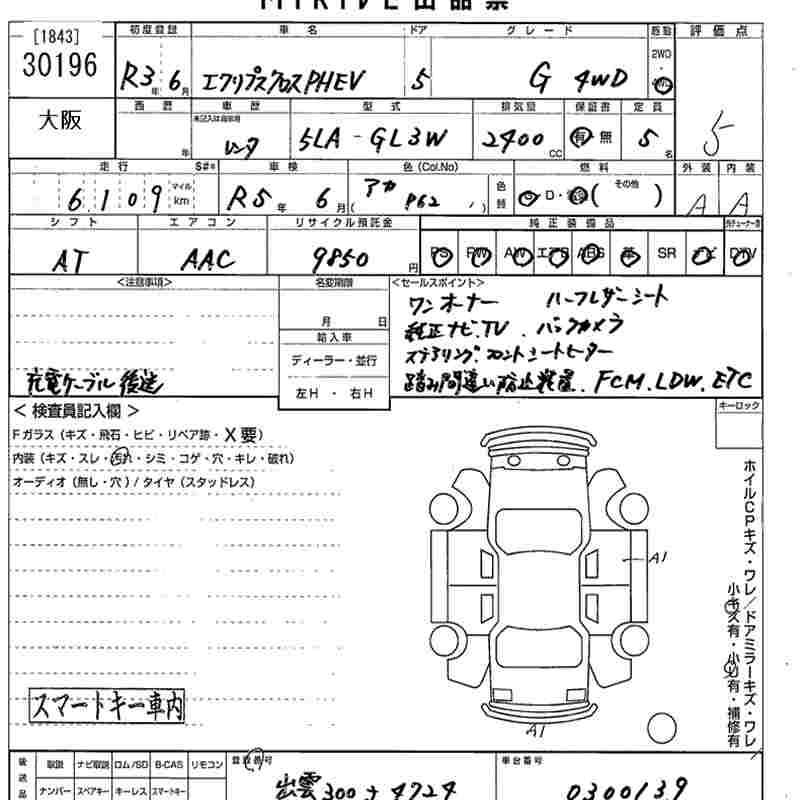 MIRIVE出品票
[1843]
30196
大阪
初度登録 車名 ドア グレード 駆動 評価点
R3年6月 エクリプスクロスPHEV 5 G 4WD 2WD 4WD
西暦 車歴 型式 排気量 保証書 定員
年 未記入は自家用 レンタ 5LA-GL3W 2400CC 有 無 5名 5
走行 S#* 車検 色(Col.No) 燃料 外装 内装
6109 マイル km R5年6月 (アカ P62) 色替 G・D・(その他) A A
シフト エアコン リサイクル預託金 純正装備品
AT AAC 9850円 PS PW AW エアB ABS 革 SR ナビ DTV
<注意事項> 名変期限 <セールスポイント>
月 日
ワンオーナー ハーフレザーシート
輸入車
純正ナビ.TV.バックカメラ
ディーラー・並行
ステアリング.フロントシートヒーター
充電ケーブル後送 左H・右H
踏み間違い防止装置.FCM.LDW.ETC
<検査員記入欄> キーロック
Fガラス(キズ・飛石・ヒビ・リペア跡・X要)
内装(キズ・スレ・汚れ・シミ・コゲ・穴・キレ・破れ)
オーディオ(無し・穴)/タイヤ(スタッドレス)
A1
A1
ホイルCPキズ・ワレ/ドアミラーキズ・ワレ
小キズ有・小凹有・補修有
スマートキー車内
後送品 取説 ナビ取説 ロム/SD B-CAS リモコン 登録番号 車台番号
ナンバー スペアキー キーレス スマートキー 出雲300 4724 0300139